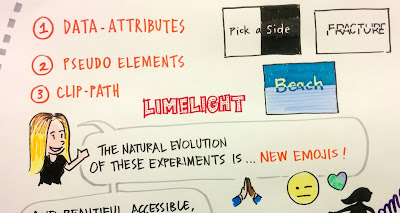 1 DATA-ATTRIBUTES
2 PSEUDO ELEMENTS
3 CLIP-PATH
Pick a Side
FRACTURE
Beach
LIMELIGHT
THE NATURAL EVOLUTION
OF THESE EXPERIMENTS IS ... NEW EMOJIS!
AND BEAUTIFUL, ACCESSIBLE,